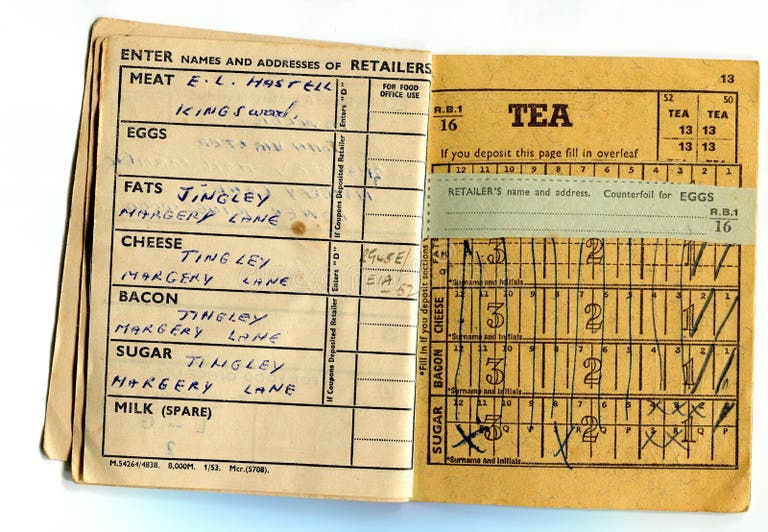 ENTER NAMES AND ADDRESSES OF RETAILERS
MEAT E. L. HASTELL
Kingswood,
FOR FOOD
OFFICE USE
Enters "D"
EGGS
If Coupons Deposited Retailer
FATS TINGLEY
MARGERY LANE
CHEESE
TINGLEY
MARGERY LANE
Enters "D"
BACON
TINGLEY
MARGERY LANE
If Coupons Deposited Retailer
SUGAR TINGLEY
MARGERY LANE
MILK (SPARE)
M.54264/4838. 8,000M. 1/53. Mcr.(5708).
13
R.B.1
16
TEA
52 50
TEA TEA
13 13
13 13
If you deposit this page fill in overleaf
12 11 10 9 8 7 6 5 4 3 2 1
RETAILER'S name and address. Counterfoil for EGGS
R.B.1
16
3 2 1
*Surname and Initials
*Fill in if you deposit sections
CHEESE
12 11 10 9 8 7 6 5 4 3 2 1
3 2 1
*Surname and Initials
BACON
12 11 10 9 8 7 6 5 4 3 2 1
3 2 1
*Surname and Initials
SUGAR
12 11 10 9 8 7 6 5 4 3 2 1
3 2 1
*Surname and Initials